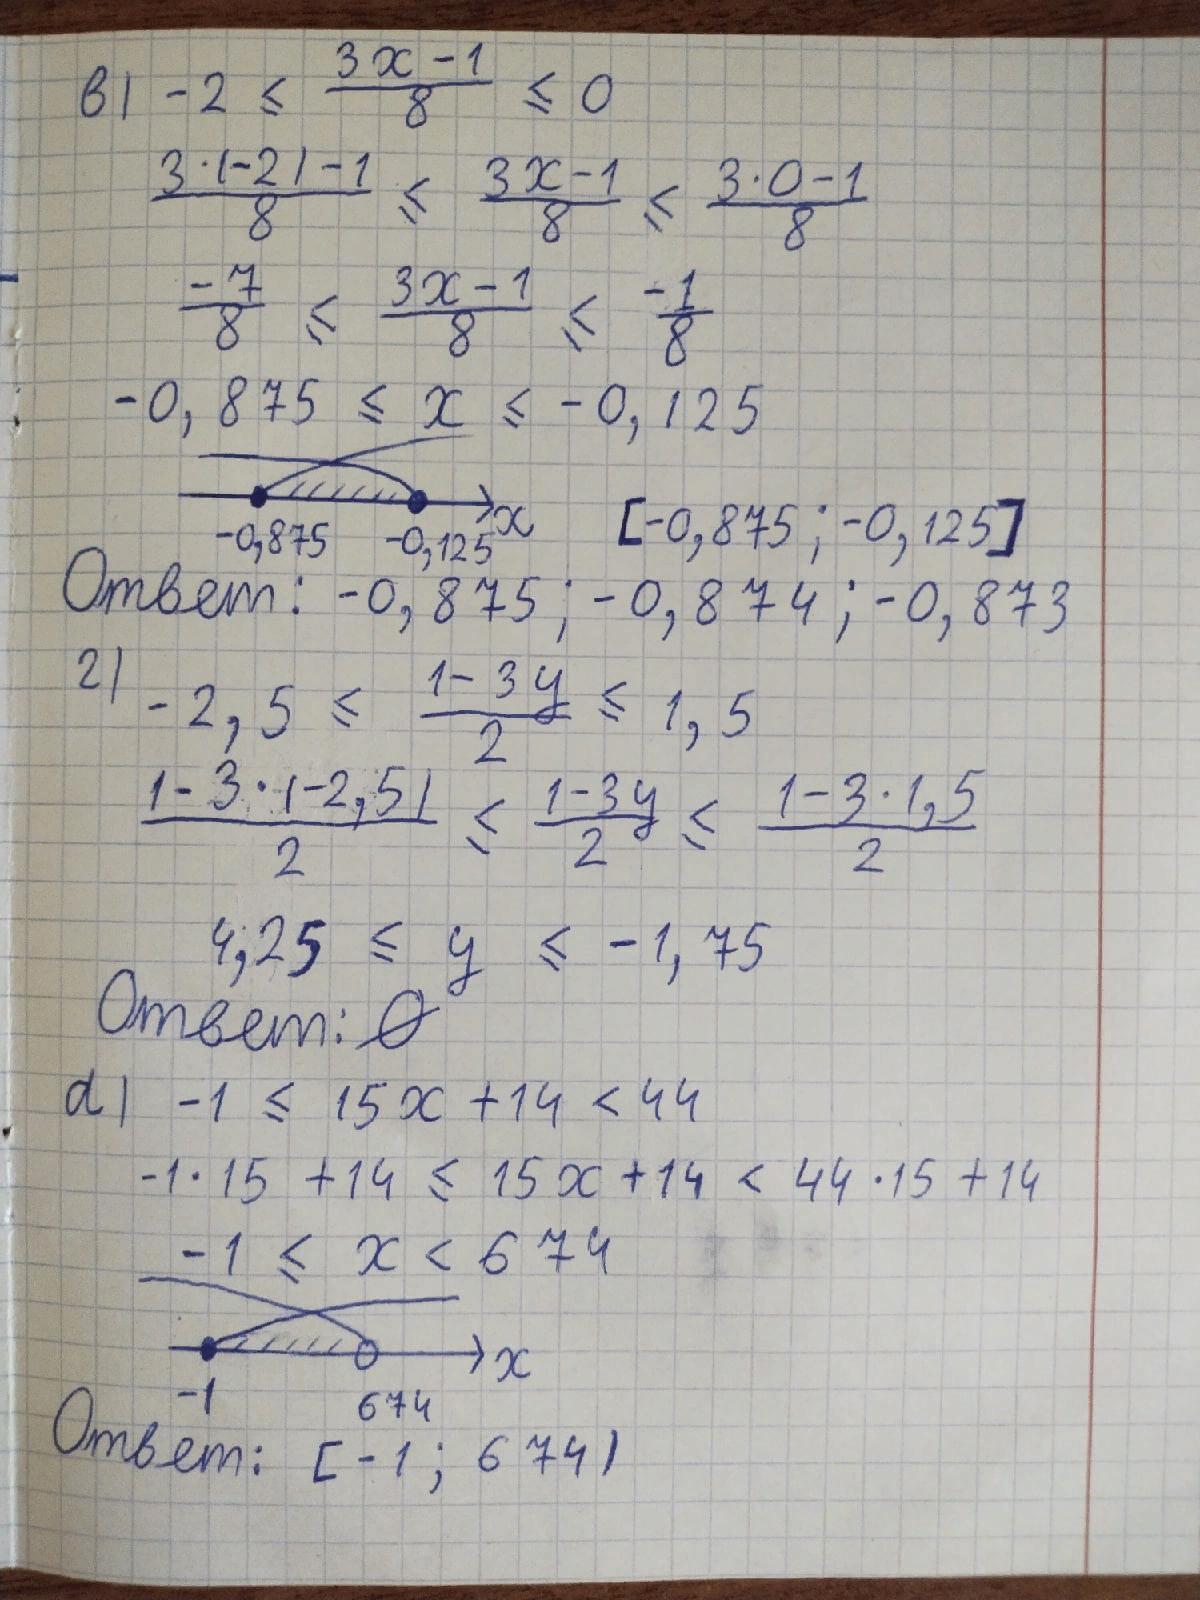 в) -2 ≤ (3x-1)/8 ≤ 0
(3·(-2)-1)/8 ≤ (3x-1)/8 ≤ (3·0-1)/8
-7/8 ≤ (3x-1)/8 ≤ -1/8
-0,875 ≤ x ≤ -0,125
x
-0,875 -0,125 [-0,875; -0,125]
Ответ: -0,875; -0,874; -0,873
г) -2,5 ≤ (1-3y)/2 ≤ 1,5
(1-3·(-2,5))/2 ≤ (1-3y)/2 ≤ (1-3·1,5)/2
4,25 ≤ y ≤ -1,75
Ответ: Ø
d) -1 ≤ 15x+14 < 44
-1·15 +14 ≤ 15x+14 < 44·15+14
-1 ≤ x < 674
x
-1 674
Ответ: [-1; 674)